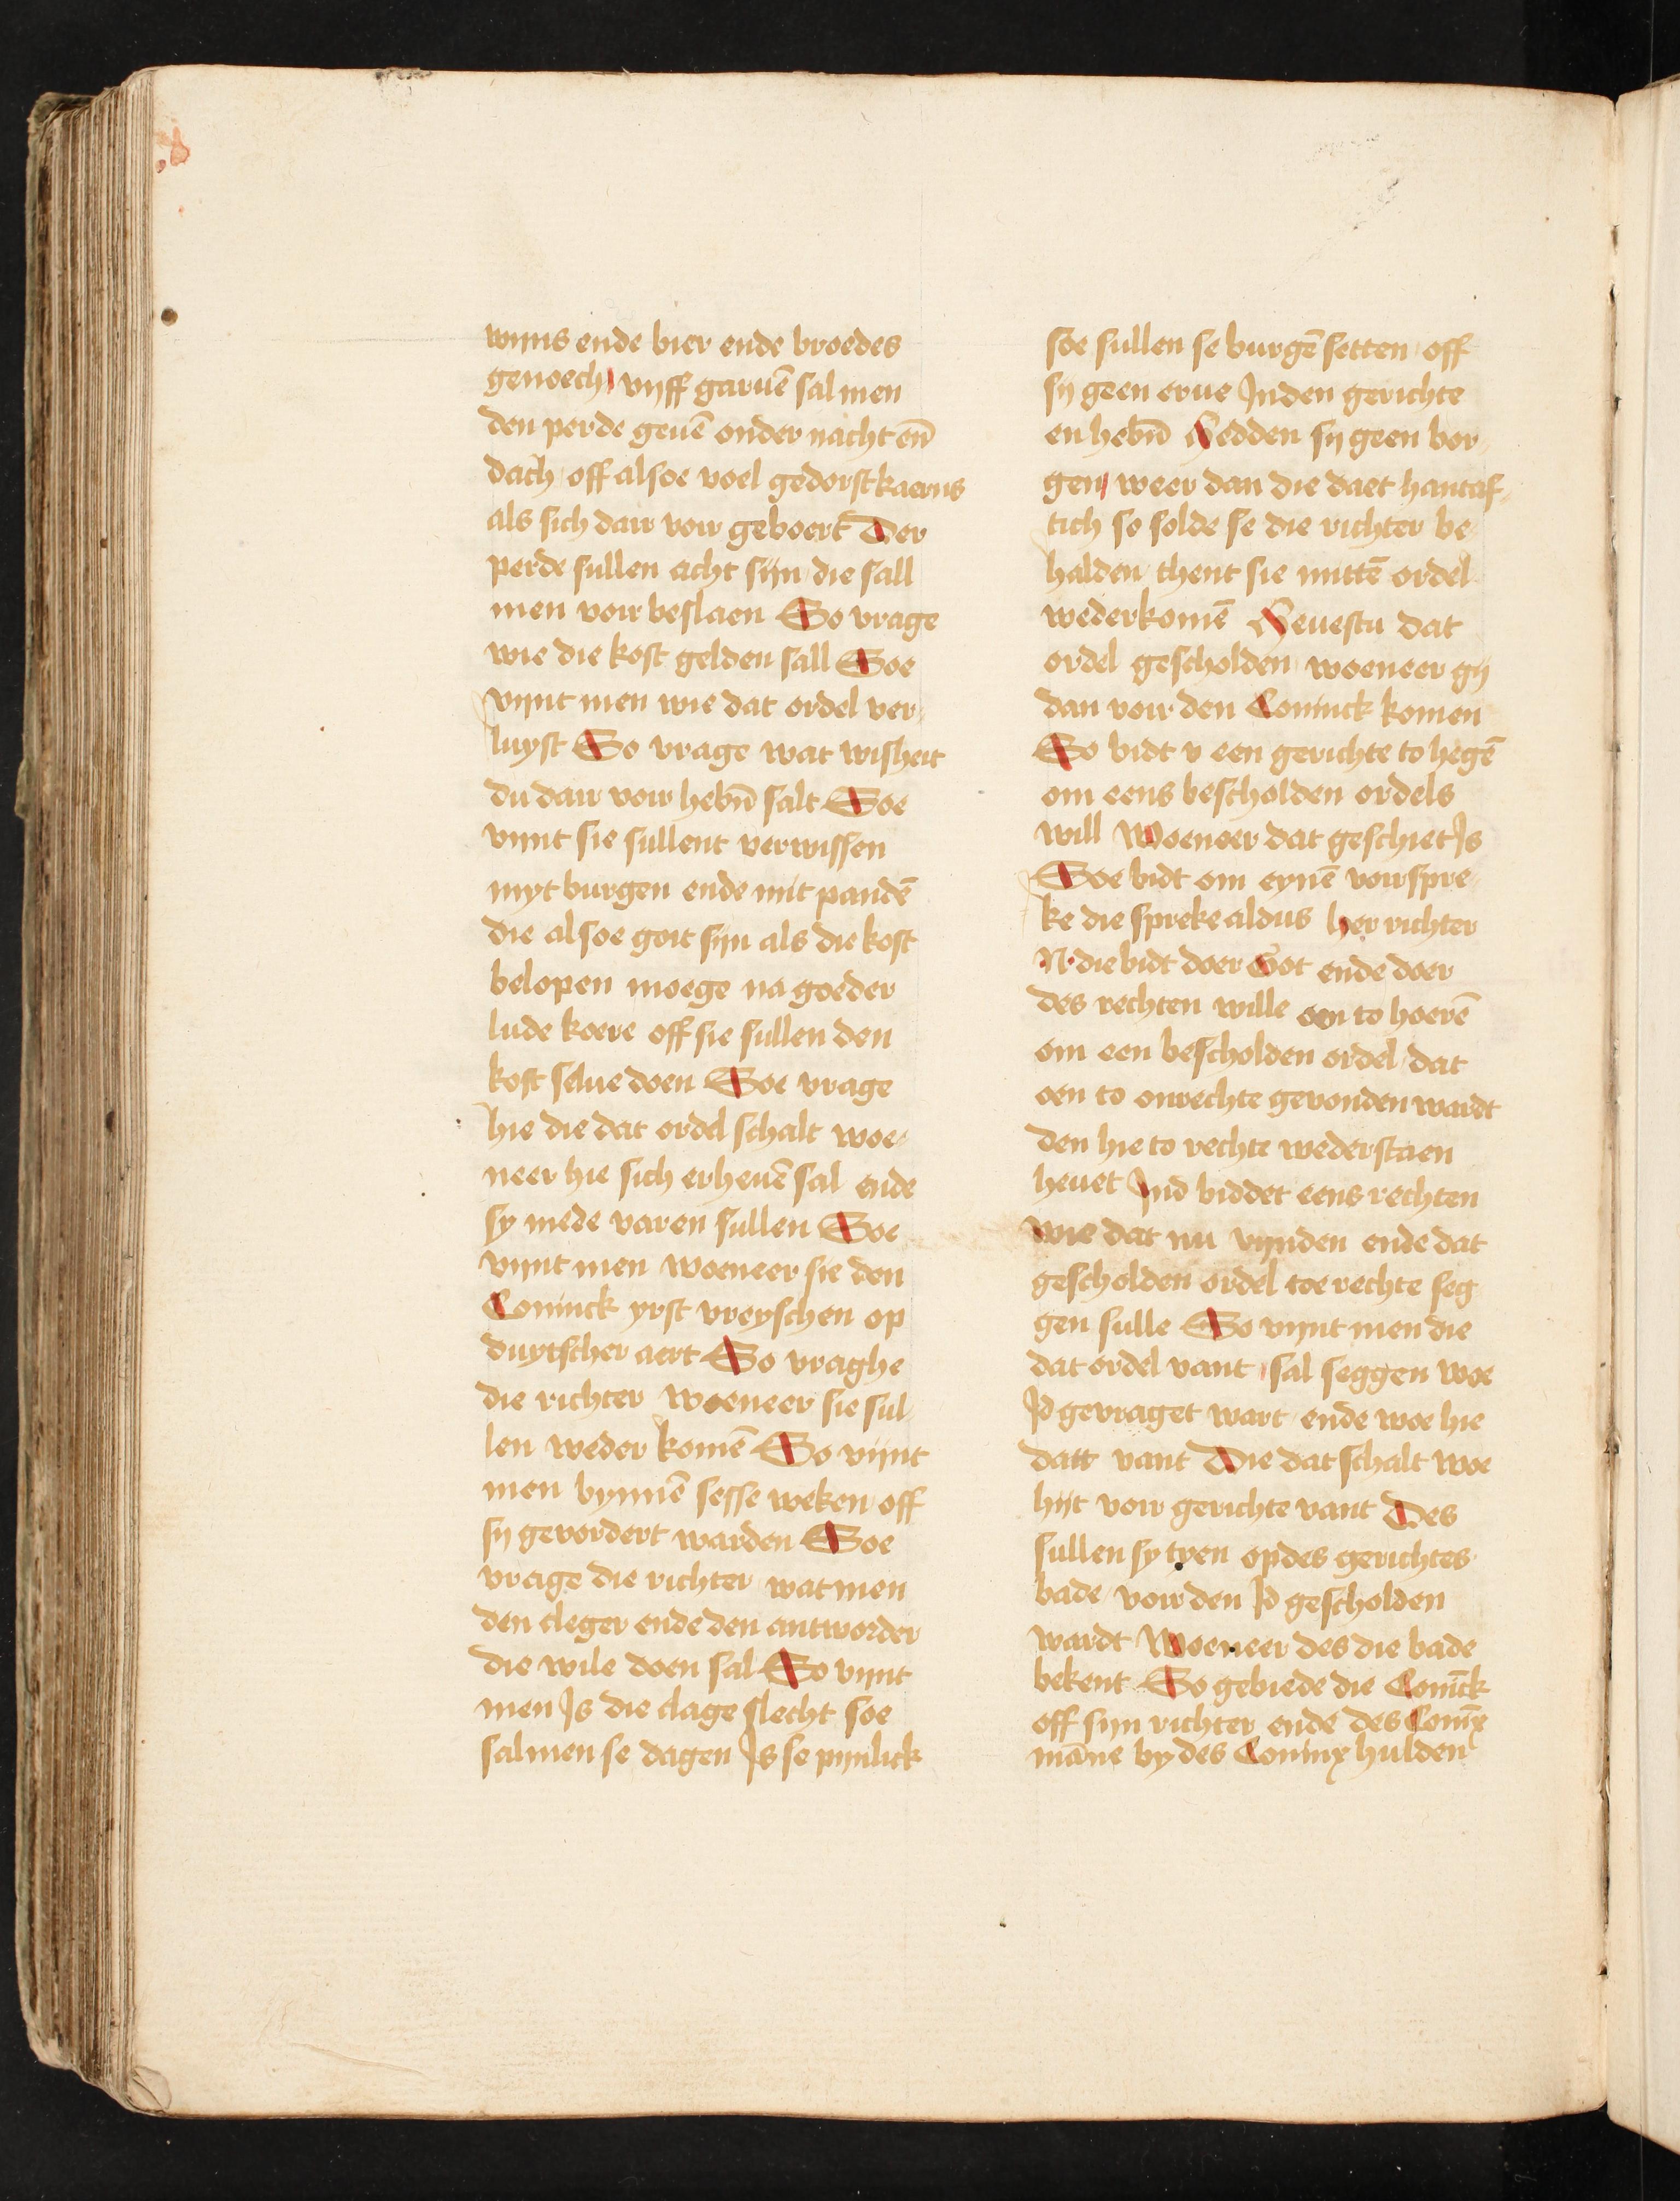 wijns ende bier ende broedes
genoech vijff garuē sal men
den perde geuē onder nacht en̄
dach off alsoe voel gedorst kaerns
als sich dair voir geboert Der
perde sullen acht sijn die sall
men voir beslaen So vrage
wie die kost gelden sall Soe
vijnt men wie dat ordel ver
luyst So vrage wat wisheit
du dair voir hebn̄ salt Soe
vijnt sie sullent verwissen
myt burgen ende mit pandē
die alsoe goit sijn als die kost
belopen moege na goeder
lude koere off sie sullen den
kost selue doen Soe vrage
hie die dat ordel schalt woe
neer hie sich erheuē sal ende
sy mede varen sullen Soe
vijnt men woeneer sie den
Coninck yrst vreyschen op
duytscher aert So vraghe
die richter woeneer sie sul
len weder komē So vijnt
men bynnē sesse weken off
sij gevordert warden Soe
vrage die richter wat men
den cleger ende den antworder
die wile doen sal So vijnt
men Js die clage slecht soe
sal men se dagen Js se pijnlick
soe sullen se burgē setten off
sij geen erue Jnden gerichte
en hebn̄ Hedden sij geen bor
gen weer dan die daet hantaf
tich so solde se die richter be
halden thent sie mittē ordel
wederkomē Heuestu dat
ordel gescholden woeneer gij
dan voir den Coninck komen
So bidt v een gerichte to hegē
om eens bescholden ordels
will Woeneer dat geschiet Js
Soe bidt om eynē voirspre
ke die spreke aldus her richter
N. die bidt doer Got ende doer
des rechten wille oen to hoerē
om een bescholden ordel dat
oen to onrechte gevonden wardt
den hie to rechte wederstaen
heuet Jnd biddet eens rechten
wie dat nu vijnden ende dat
gescholden ordel toe rechte seg
gen sulle So vijnt men die
dat ordel vant sal seggen woe
Jd gevraget wart ende woe hie
datt vant Die dat schalt woe
hijt voir gerichte vant Des
sullen sy tyen op des gerichtes
bade voir den Jd gescholden
wardt Woeneer des die bade
bekent So gebiede die Conīck
off sijn richter ende des Conīx
māne by des Coninx hulden